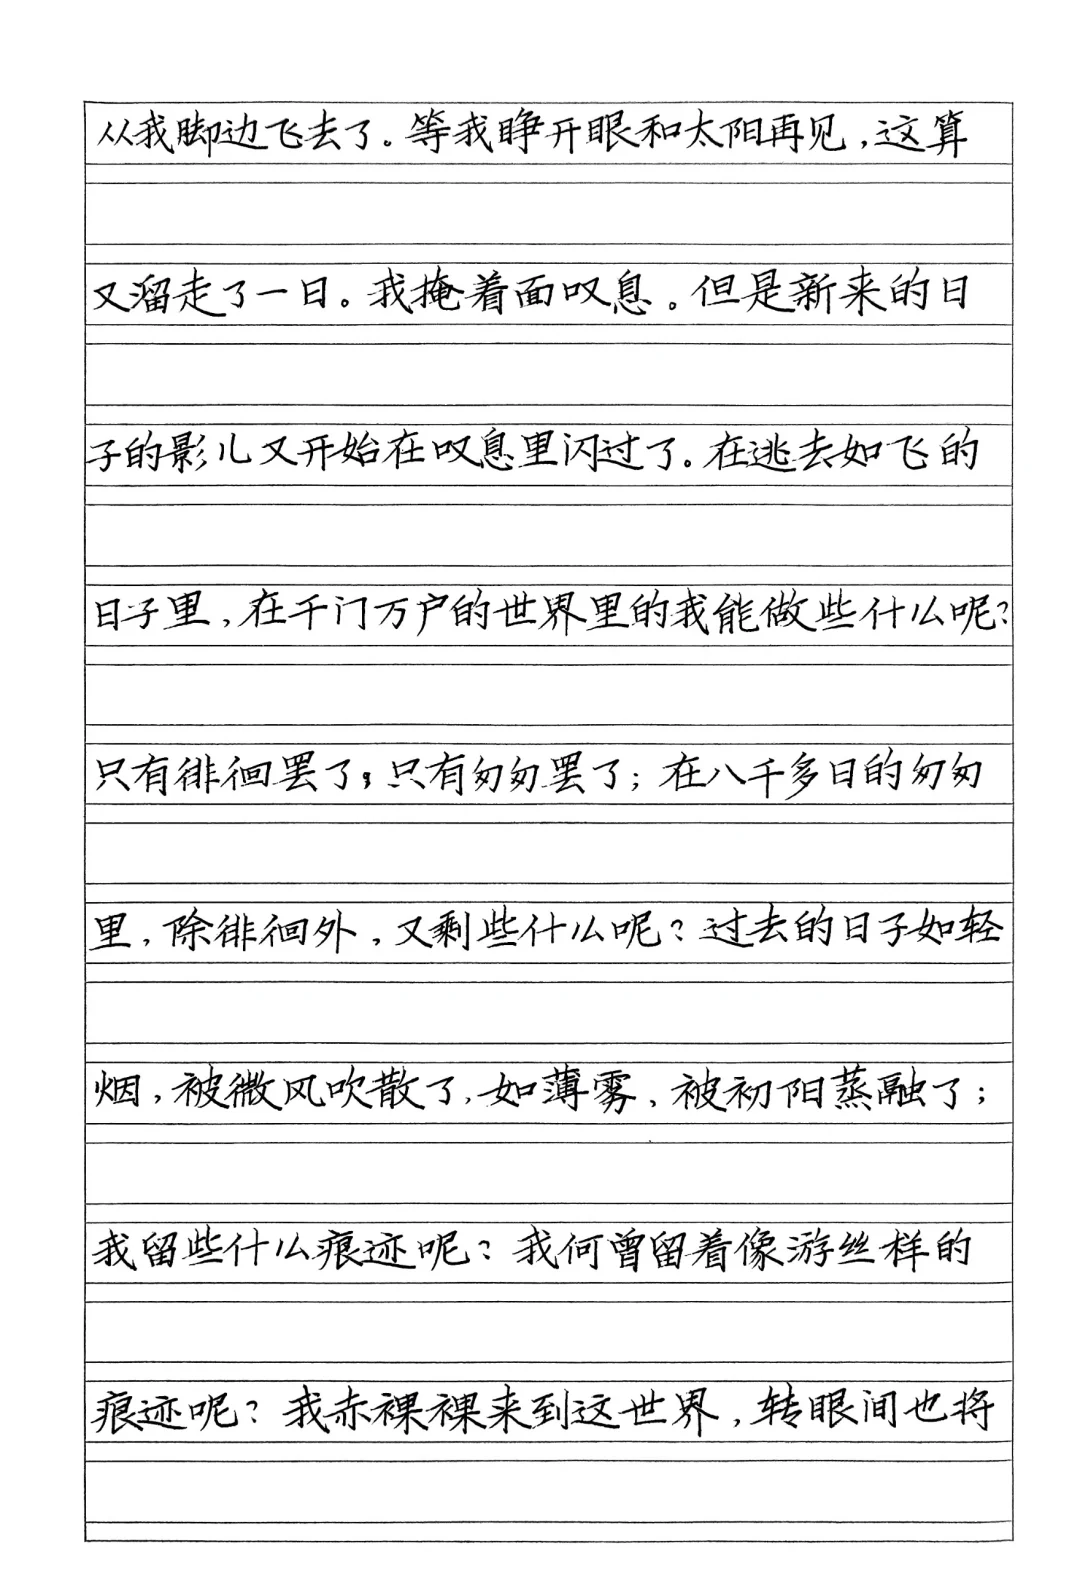 从我脚边飞去了。等我睁开眼和太阳再见，这算
又溜走了一日。我掩着面叹息。但是新来的日
子的影儿又开始在叹息里闪过了。在逃去如飞的
日子里，在千门万户的世界里的我能做些什么呢？
只有徘徊罢了，只有匆匆罢了；在八千多日的匆匆
里，除徘徊外，又剩些什么呢？过去的日子如轻
烟，被微风吹散了，如薄雾，被初阳蒸融了；
我留些什么痕迹呢？我何曾留着像游丝样的
痕迹呢？我赤裸裸来到这世界，转眼间也将